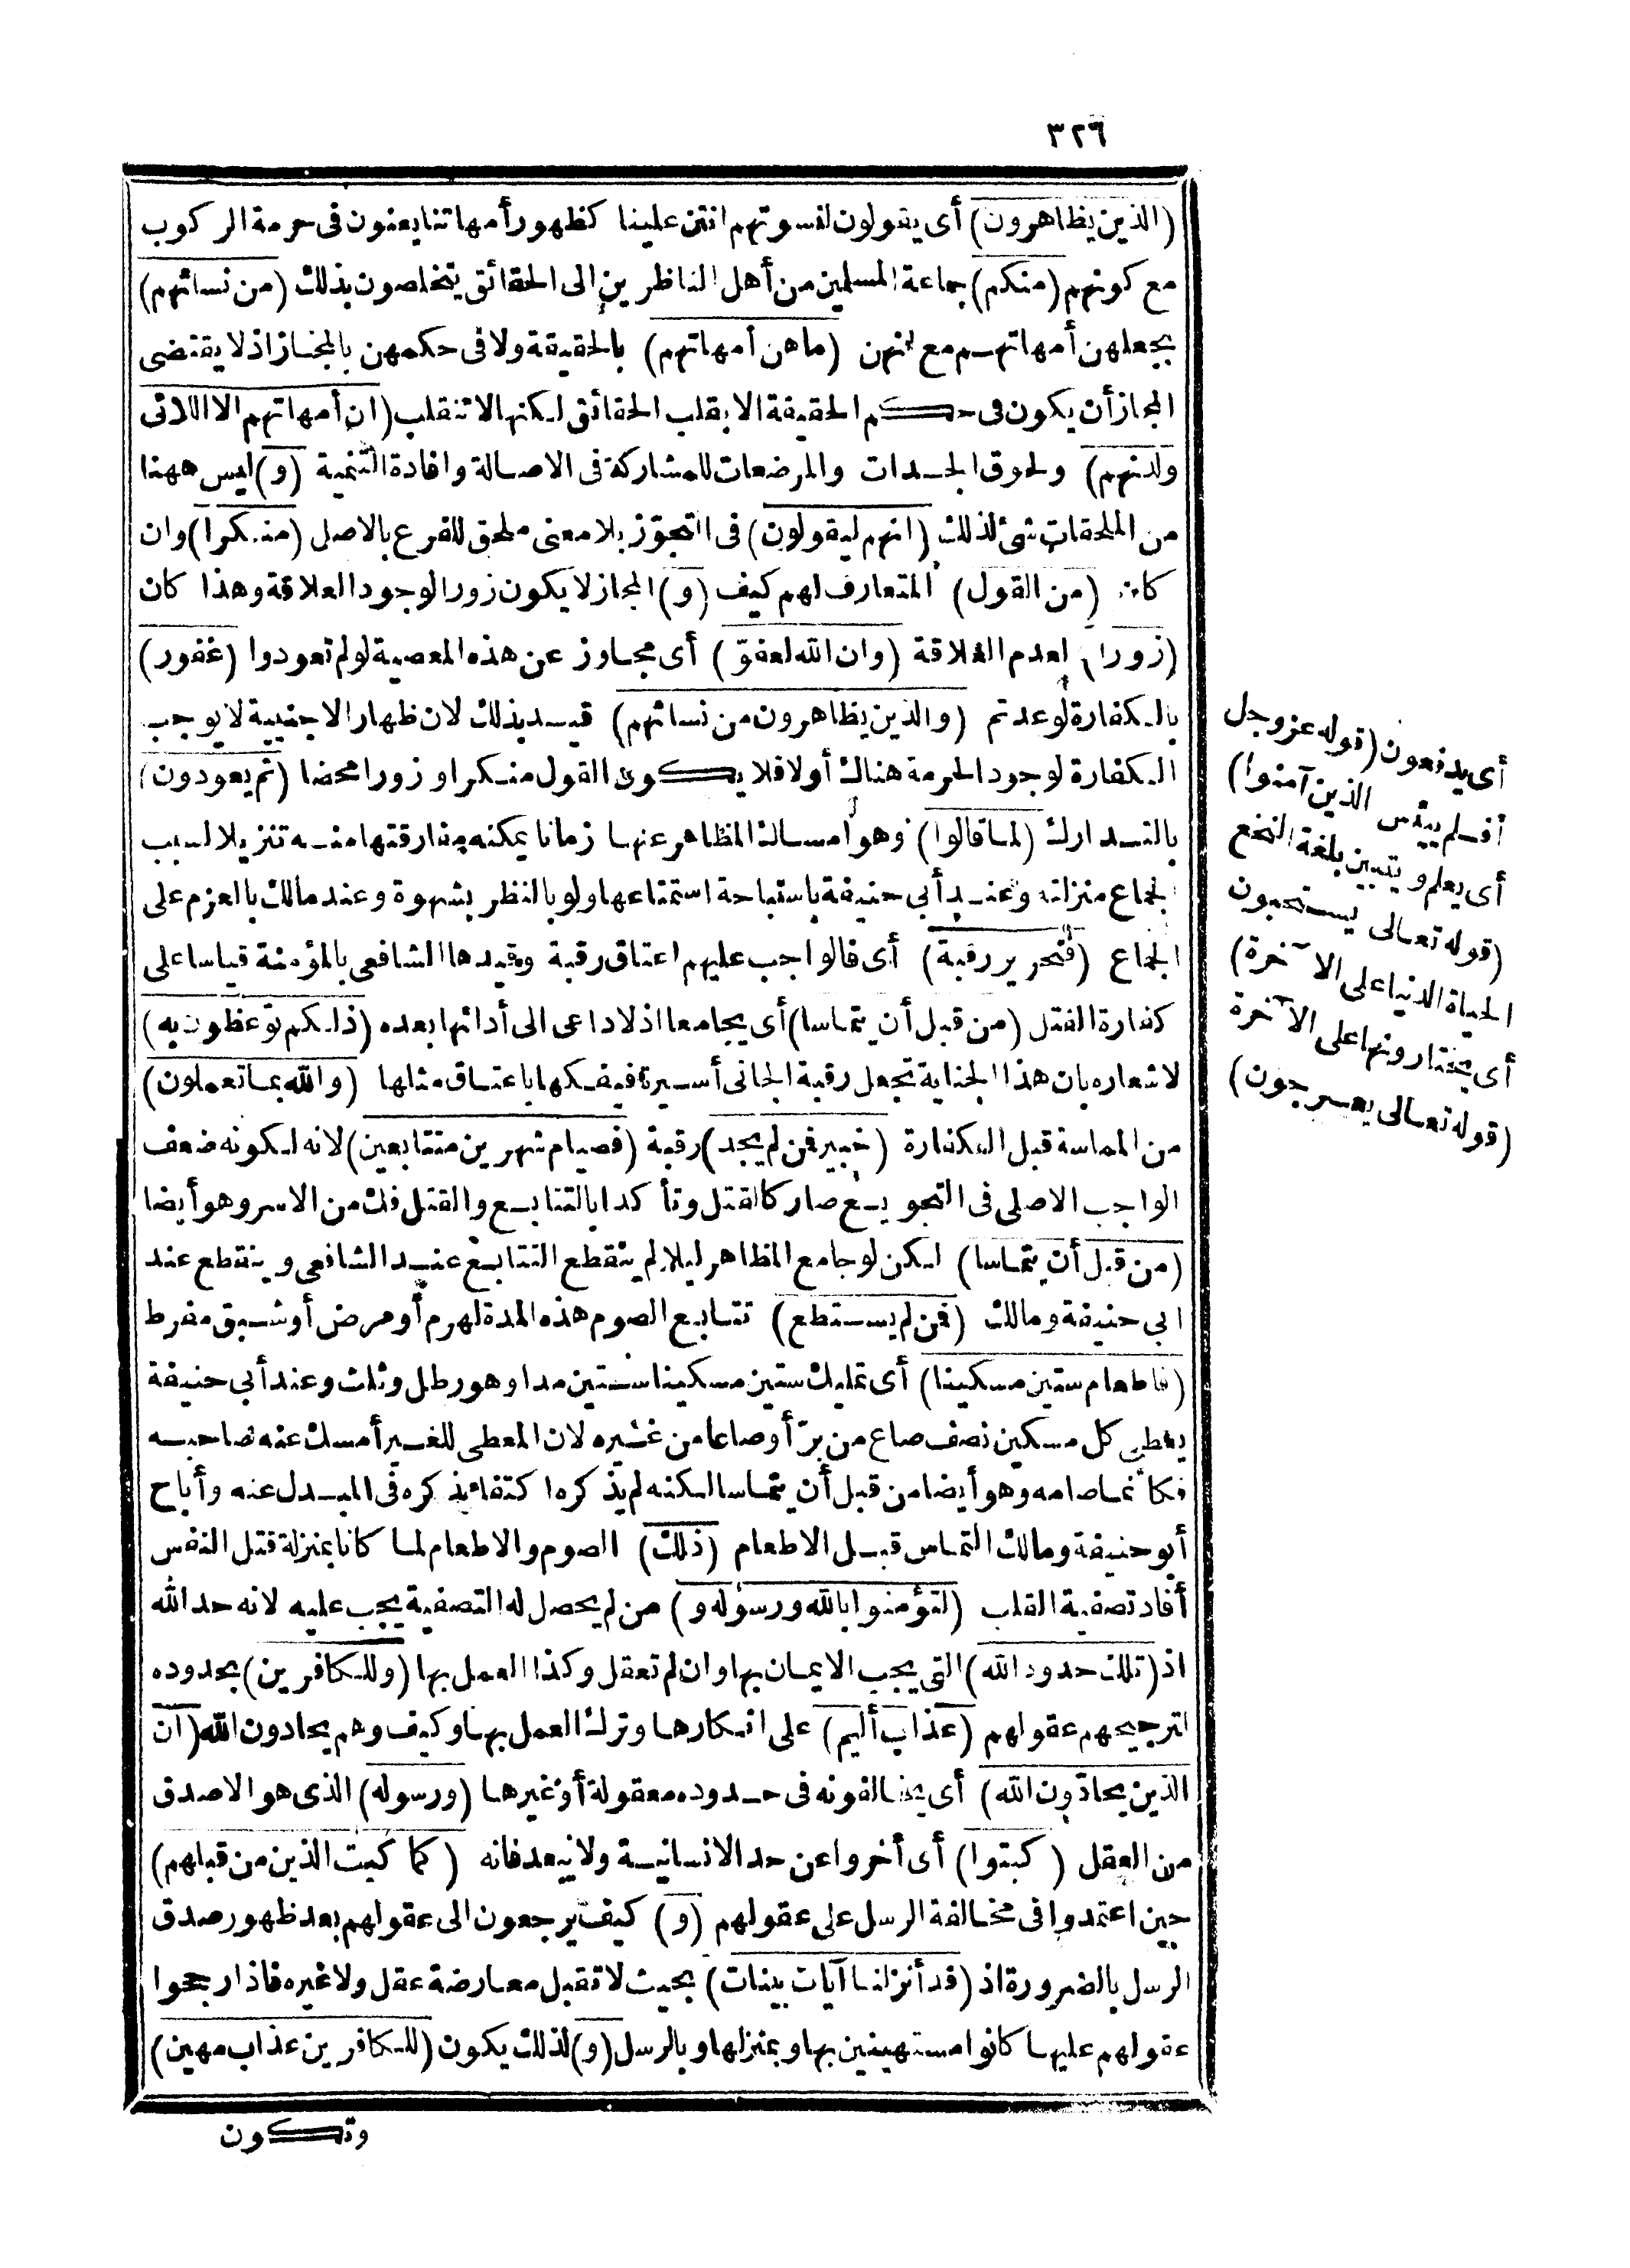 ٣٢٦
(الذين يظاهرون) أى يقولون لنسوتهم انتن علينا كظهور أمهاتنا يعنون فى حرمة الركوب
مع كونهم (منكم) جماعة المسلمين من أهل الناظرين الى الحقائق يتخلصون بذلك (من نسائهم)
بجعلهن أمهاتهم مع انهن (ماهن أمهاتهم) بالحقيقة ولا فى حكمهن بالمجاز اذ لا يقتضى
المجاز أن يكون فى حكم الحقيقة الا بقلب الحقائق لكنها لا تنقلب (ان أمهاتهم الا اللائى
ولدنهم) ولحوق الجدات والمرضعات للمشاركة فى الاصالة وافادة التنمية (و) ليس ههنا
من الملحقات شئ لذلك (انهم ليقولون) فى التجوّز بلا معنى ملحق للفرع بالاصل (منكرا) وان
كان (من القول) المتعارف لهم كيف (و) المجاز لا يكون زورا لوجود العلاقة وهذا كان
(زورا) لعدم العلاقة (وان الله لعفوّ) أى مجاوز عن هذه المعصية لو لم تعودوا (غفور)
بالكفارة لو عدتم (والذين يظاهرون من نسائهم) قيد بذلك لان ظهار الاجنبية لا يوجب
الكفارة لوجود الحرمة هناك أولا فلا يكون القول منكرا وزورا محضا (ثم يعودون)
بالتدارك (لما قالوا) وهو أمساك المظاهر عنها زمانا يمكنه مفارقتها منه تنزيلا لسبب
الجماع منزلته وعند أبي حنيفة باستباحة استمتاعها ولو بالنظر بشهوة وعند مالك بالعزم على
الجماع (فتحرير رقبة) أى فالواجب عليهم اعتاق رقبة وقيدها الشافعى بالمؤمنة قياسا على
كفارة القتل (من قبل أن يتماسا) أى يجامعا اذ لا داعى الى أدائها بعده (ذلكم توعظون به)
لاشعاره بان هذا الجناية تجعل رقبة الجانى أسيرة فيفكها باعتاق مثلها (والله بما تعملون)
من المماسة قبل الكفارة (خبير فمن لم يجد) رقبة (فصيام شهرين متتابعين) لانه لكونه ضعف
الواجب الاصلى فى التجويع صار كالقتل وتأكدا بالتتابع والقتل فك من الاسر وهو أيضا
(من قبل أن يتماسا) لكن لو جامع المظاهر ليلا لم ينقطع التتابع عند الشافعى وينقطع عند
ابي حنيفة ومالك (فمن لم يستطع) تتابع الصوم هذه المدة لهرم أو مرض أو شبق مفرط
(فاطعام ستين مسكينا) أى تمليك ستين مسكينا ستين مدا وهو رطل وثلث وعند أبي حنيفة
يعطى كل مسكين نصف صاع من برّ أو صاعا من غيره لان المعطى للغير أمسك عنه صاحبه
فكأنما صامه وهو أيضا من قبل أن يتماسا لكنه لم يذكره اكتفاء بذكره فى المبدل عنه وأباح
أبو حنيفة ومالك التماس قبل الاطعام (ذلك) الصوم والاطعام لما كانا بمنزلة قتل النفس
أفاد تصفية القلب (لتؤمنوا بالله ورسوله و) من لم يحصل له التصفية يجب عليه لانه حد الله
اذ (تلك حدود الله) التى يجب الايمان بها وان لم تعقل وكذا العمل بها (وللكافرين) بحدوده
لترجيحهم عقولهم (عذاب أليم) على انكارها وترك العمل بها وكيف وهم يحادون الله (ان
الذين يحادّون الله) أى يخالفونه فى حدوده معقولة أو غيرها (ورسوله) الذى هو الاصدق
من العقل (كبتوا) أى أخروا عن حد الانسانية ولا يبعد فانه (كما كبت الذين من قبلهم)
حين اعتمدوا فى مخالفة الرسل على عقولهم (و) كيف يرجعون الى عقولهم بعد ظهور صدق
الرسل بالضرورة اذ (قد أنزلنا آيات بينات) بحيث لا تقبل معارضة عقل ولا غيره فاذا رجحوا
عقولهم عليها كانوا مستهينين بها وبمنزلها وبالرسل (و) لذلك يكون (للكافرين عذاب مهين)
وتكون
أى يدفعون (قوله عز وجل
أفلم ييئس الذين آمنوا)
أى يعلم ويتبين بلغة النخع
(قوله تعالى يستحبون
الحياة الدنيا على الآخرة)
أى يختارونها على الآخرة
(قوله تعالى يعرجون)